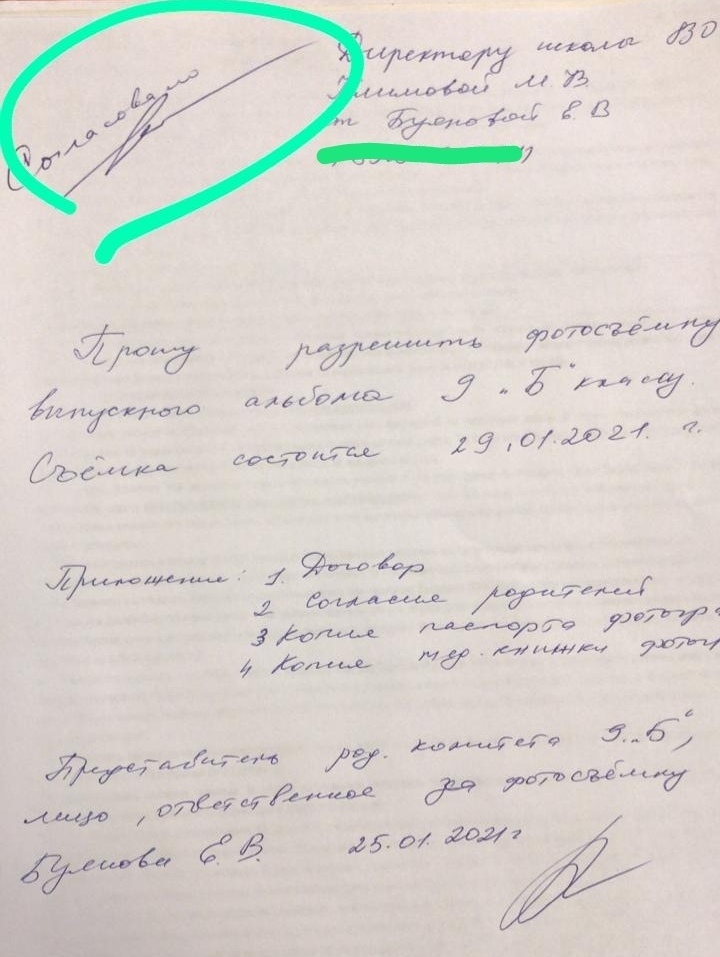 Согласовано
Директору школы 830
Климовой М. В.
от Буяновой Е. В
Прошу разрешить фотосъёмку
выпускного альбома 9 „Б“ классу.
Съёмка состоится 29.01.2021. г.
Приложение: 1. Договор
2 Согласие родителей
3 Копие паспорта фотогра
4 Копие мед. книжки фотогр
Представитель род. комитета 9 „Б“,
лицо, ответственное за фотосъёмку
Е. В. 25.01.2021г